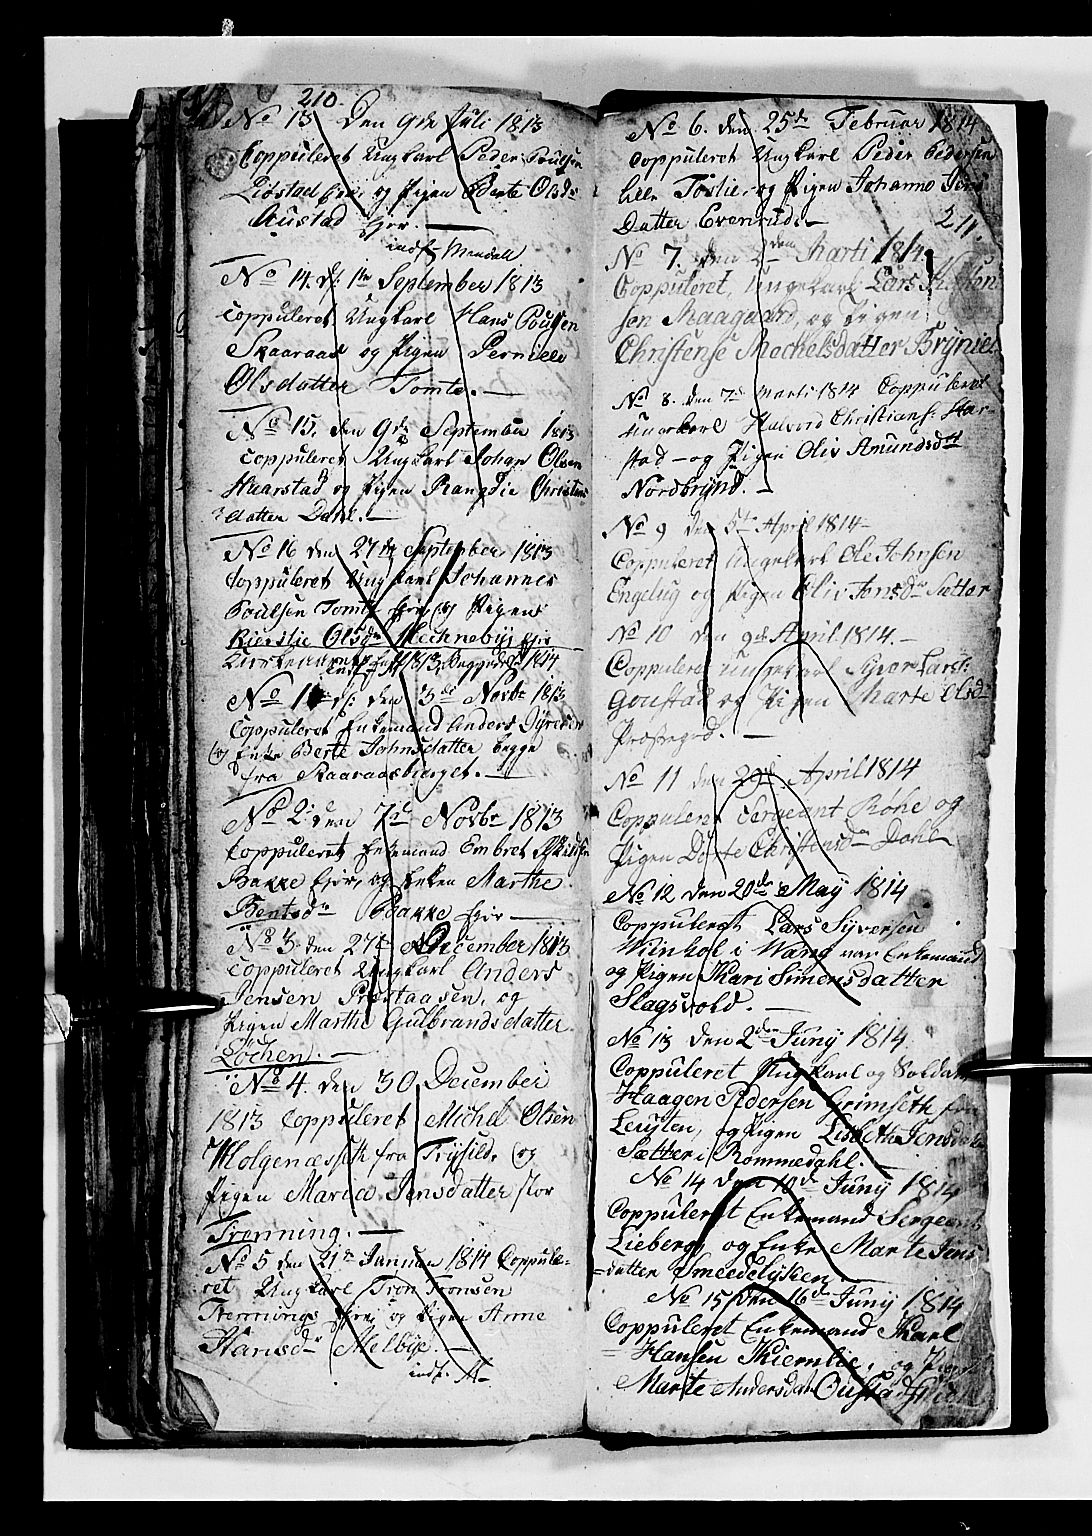 210.
No 13 Den 9de Juli 1813
Coppuleret Ungkarl Peder Poulsen
og Pigen Berte Olsdr
Austad Eyer.
indf. Mandall
No 14. d: 1te September 1813
Coppuleret Ungkarl Hans Poulsen
Skaaraas og Pigen Pernille
Olsdatter Tomte.
No 15. den 9de September 1813
Coppuleret Ungkarl Johan Olsen
Haarstad og Pigen Rangdie Christens
datter Dahl.
No 16 den 27de September 1813
Coppuleret Ungkarl Johannes
Poulsen Tomte Eyer, og Pigen
Kierstie Olsdr Mechneby Eyer
Kirkeaaret 1813, Begyndt 1814
No 1 d: den 3de Novbr 1813
Coppuleret Enkemand Anders Syversen
og Enke Berte Johnsdatter begge
fra Skaaraasberget.
No 2 den 7de Novbr 1813
Coppuleret Enkemand Embret
Bakke Eyer, og Enken Marthe
Bentsdr Bakke Eyer
No 3. den 27de December 1813
Coppuleret Ungkarl Anders
Jensen Præstaasen, og
Pigen Marthe Gulbrandsdatter
Löchen.
No 4. den 30 December
1813 Coppuleret Michel Olsen
Molgenæsseth fra Trysild, og
Pigen Maria Jensdatter stor
Trønning.
No 5 den 21de Januar 1814 Coppule-
ret Ungkarl Tron Tronsen
Trønnings Eyer og Pigen Anne
Hansdr Melbye.
indf.
No 6. den 25de Februar 1814
Coppuleret Ungkarl Peder Pedersen
lille Tostie, og Pigen Johanne Jens
Datter Evenrud.
211.
No 7. den 2den Marti 1814
Coppuleret, Ungekarl Lars
sen Aaagaard, og Pigen
Christense Mechelsdatter Brynie
No 8. den 7de Marti 1814 Coppuleret
Ungkarl Halvord Christians: Har-
stad - og Pigen Oliv Amundsdtt
Nordbrynd.
No 9 den 5te April 1814
Coppuleret Ungekarl Ole Johnsen
Engelug og Pigen Oliv Jonsdr Sætter
No 10 den 9de April 1814.
Coppuleret Ungekarl Syver Larst:
Goustad og Pigen Marte Olsdr
Præstegrd.
No 11 den 29de April 1814
Coppuleret Sergeant Röhe og
Pigen Dorte Christensdr Dahl
No 12 den 20de May 1814
Coppuleret Lars Syversen
i Wang var Enkemand
og Pigen Kari Simensdatter
Slagsvold.
No 13 den 2den Juny 1814
Coppuleret Ungkarl og Soldat
Haagen Pedersen Grimseth fra
Leuten, og Pigen Lisbeth Jensdatter
Sætter i Rommedahl.
No 14 den 10de Juny 1814
Coppuleret Enkemand Sergeant
Lieberg og Enke Marte Jens
datter Smeedelykken
No 15 den 16de Juny 1814
Coppuleret Enkemand Karl
Hansen Kiernlie, og Pigen
Marte Andersdatter